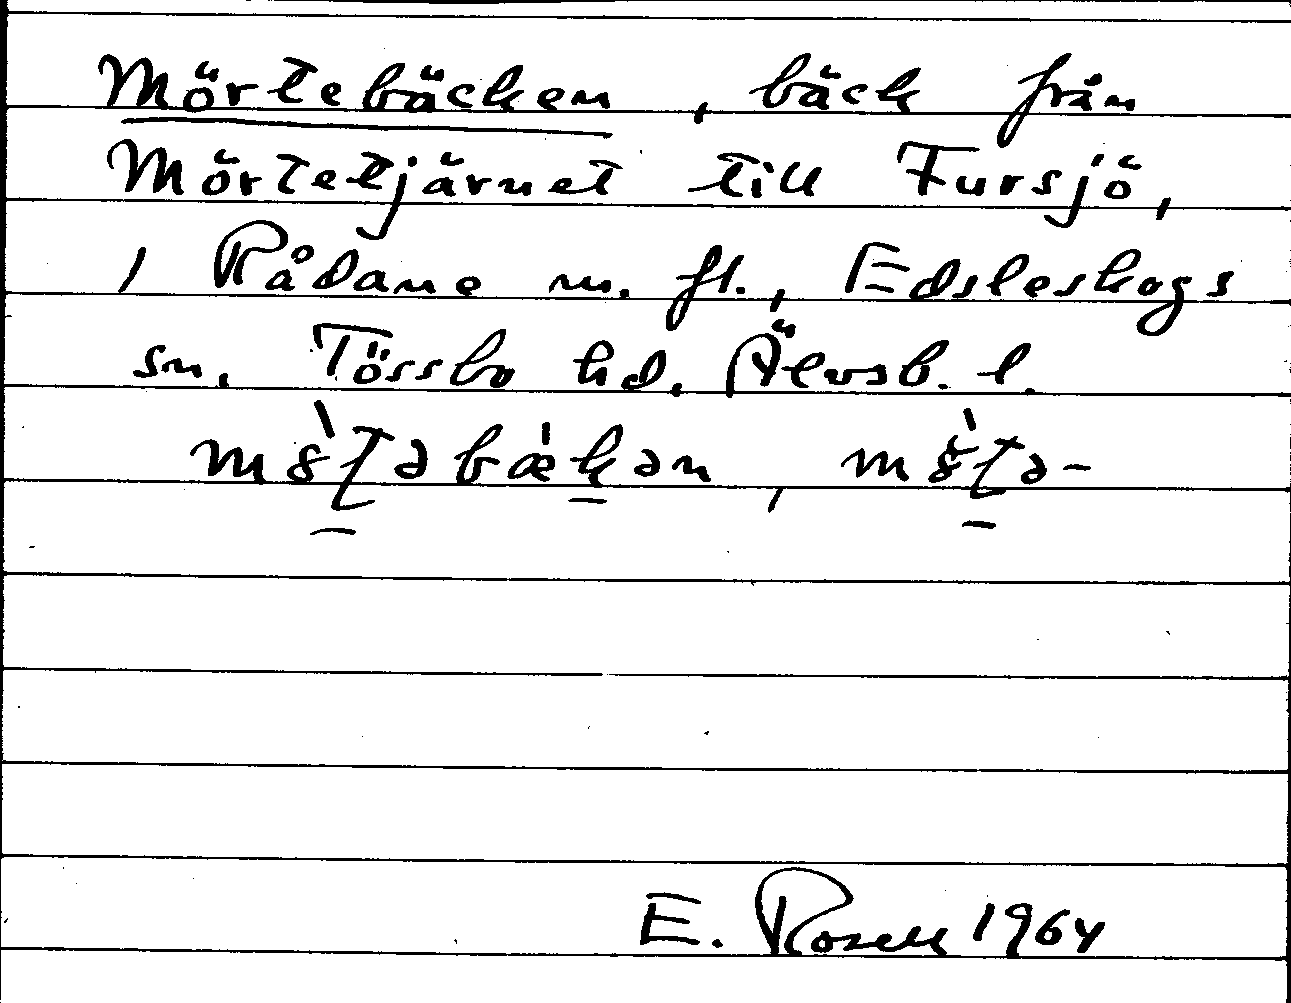 Mörtebäcken, bäck från
Mörtetjärnet till Fursjö,
1 Rådane m. fl., Edsleskogs
sn. Tössbo hd. Älvsb. l.
E. Rosell 1964